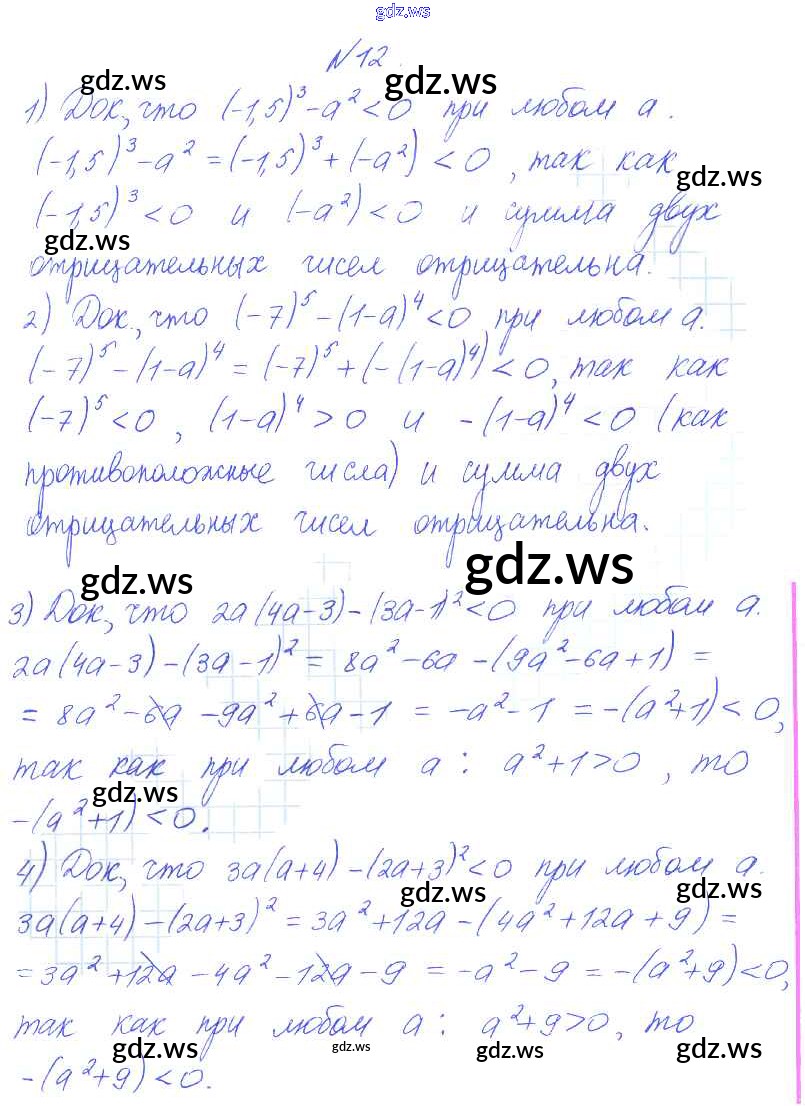 gdz.ws
N12.
gdz.ws gdz.ws
1) Док, что (-1,5)³-a²<0 при любом a.
(-1,5)³-a²=(-1,5)³+(-a²)<0, так как
gdz.ws
(-1,5)³<0 и (-a²)<0 и сумма двух
gdz.ws
отрицательных чисел отрицательна.
2) Док., что (-7)⁵-(1-a)⁴<0 при любом a.
(-7)⁵-(1-a)⁴=(-7)⁵+(-(1-a)⁴)<0, так как
(-7)⁵<0, (1-a)⁴>0 и -(1-a)⁴<0 (как
противоположные числа) и сумма двух
отрицательных чисел отрицательна.
gdz.ws gdz.ws
3) Док, что 2a(4a-3)-(3a-1)²<0 при любом a.
2a(4a-3)-(3a-1)²= 8a²-6a-(9a²-6a+1)=
= 8a²-6a-9a²+6a-1 = -a²-1 = -(a²+1)<0,
так как при любом a: a²+1>0, то
gdz.ws
-(a²+1)<0.
4) Док, что 3a(a+4)-(2a+3)²<0 при любом a.
gdz.ws gdz.ws
3a(a+4)-(2a+3)²=3a²+12a-(4a²+12a+9)=
=3a²+12a-4a²-12a-9 = -a²-9 = -(a²+9)<0,
так как при любом a: a²+9>0, то
gdz.ws gdz.ws gdz.ws gdz.ws
-(a²+9)<0.